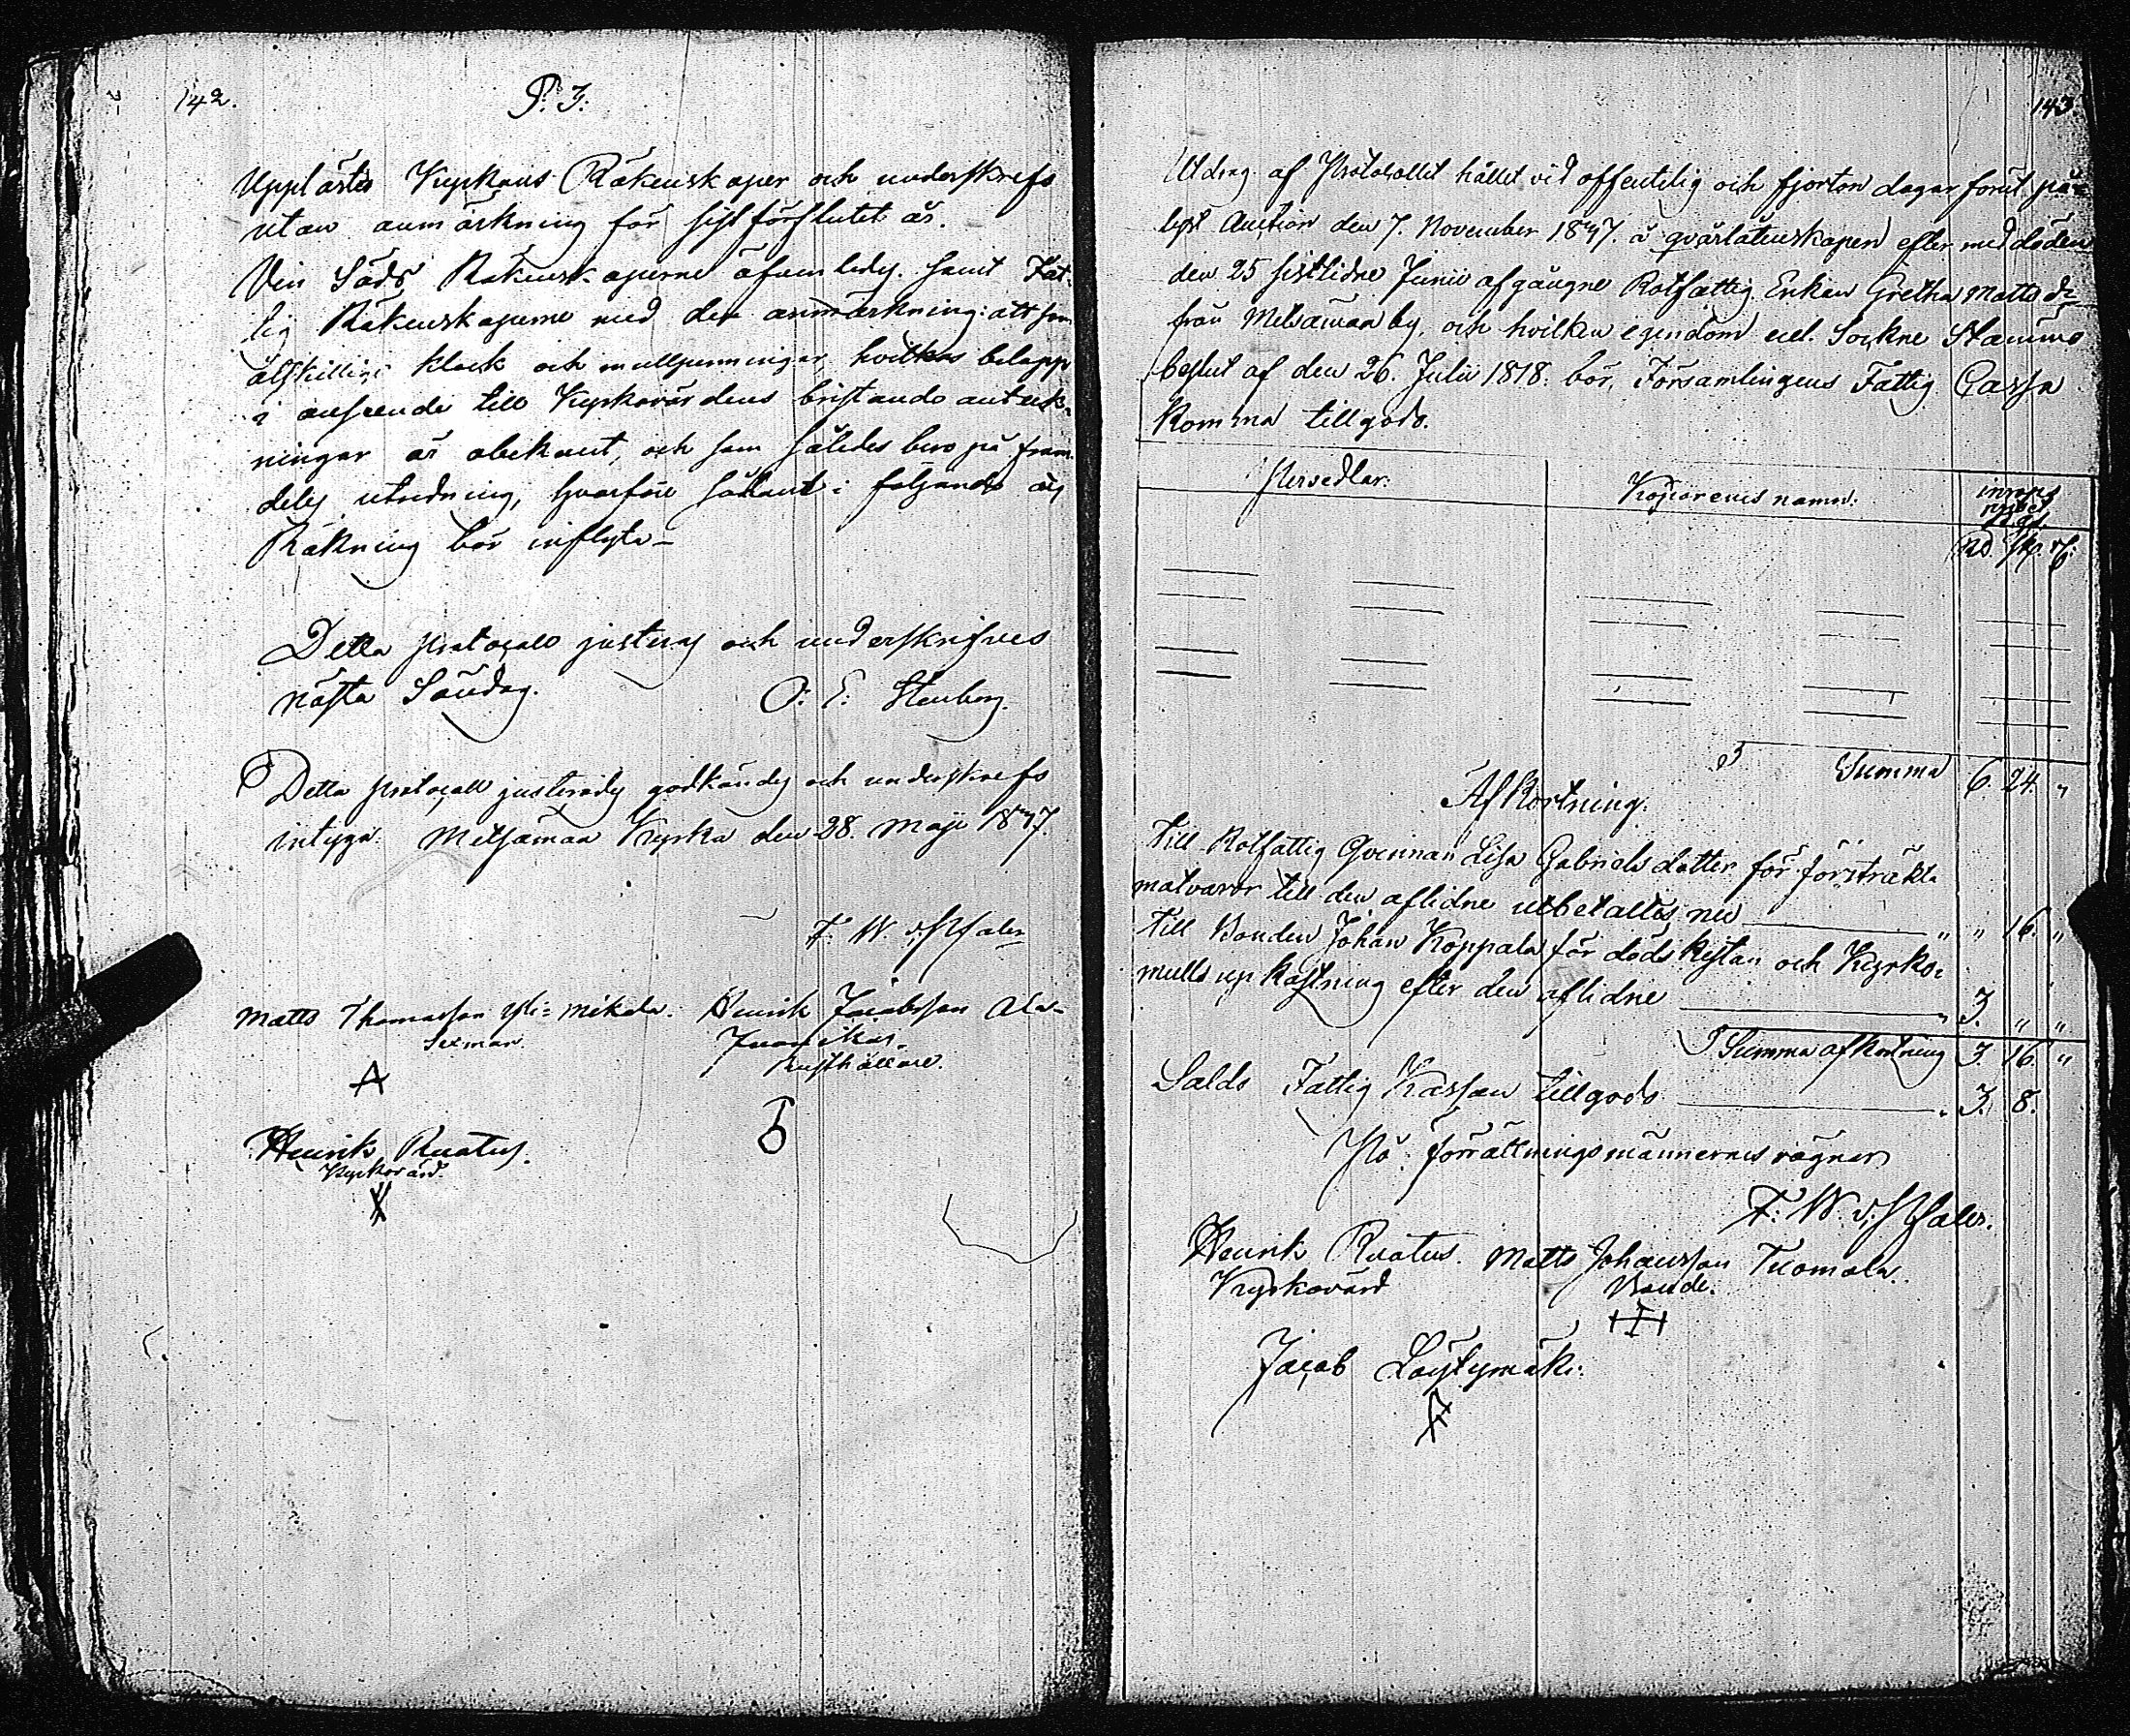 142.
P: 3:
Upplästes Kyrkans Räkenskaper och underskrefs
utan anmärkning för sist förflutet år.
Vin Säds Räkenskaperne äfvenledes. samt Fat-
tig Räkenskaperne med den anmärkning: att som
åtskillige klock och mullpenningar, hvilkas belopp
i anseende till Kyrkovärdens bristande anteck-
ningar är obekant, och som således bero på fram-
deles utredning, hvarföre sådant i följande års
Räkning bör inflyta_
Detta Protocoll justeras och underskrifves
nästa Söndag.
O: E: Stenberg.
Detta Protocoll justerades godkändes och underskrefs
intyga. Metsämaa Kyrka den 28. Maji 1847.
F: W. v: Pfaler
Matts Thomasson Yli=Mikola. Henrik Jacobsson Ala-
Sexman.
Rusthållare.
Henrik Ruatus.
Kyrkovärd.
143.
Utdrag af Protocollet hållet vid offentelig och fjorton dagar förut på-
lyst Auction den 7. November 1847. å qvarlåtenskapen efter med döden
den 25 sistlidne Junii afgångne Rotfattig Enkan Gretha Matts dr
från Metsämaa by, och hvilken egendom enl. Sockne Stämmo
beslut af den 26. Julii 1818. bör, Församlingens Fattig Cassa
komma tillgodo.
Persedlar.
Köparenes namn.
inrops
Rd. sk. rf:
Summa 6. 24. "
Afkortning.
Till Rotfattig Qvinnan Lisa Gabrielsdotter för försträckte
matvaror till den aflidne utbetaltes nu " " 16. "
Till Bonden Johan Koppala för dödskistan och Kyrko=
mulls upkastning efter den aflidne " 3. " "
Summa afkortning 3. 16. "
Saldo Fattig Kassan tillgodo " 3. 8.
På förrättningsmännernes vägnar
F: W. v: Pfaler.
Henrik Ruatus. Matts Johansson Tuomola.
Kyrkovärd Bonde.
Jacob Löytymäki.